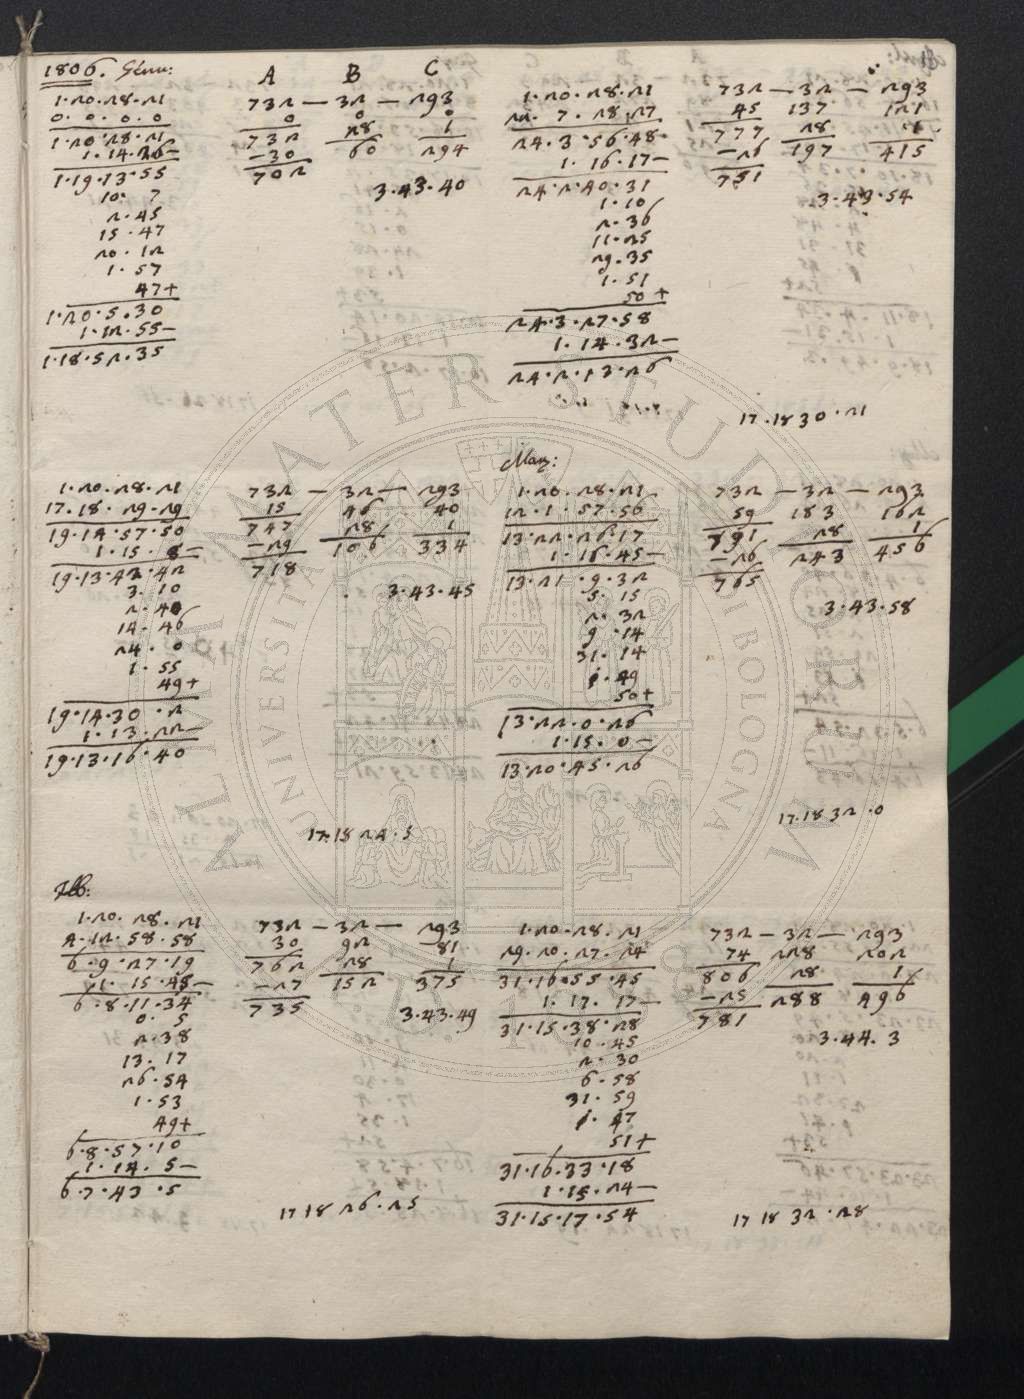 1806. Genn:
A B C
1.20.28.21 732 — 32 — 293
0.0.0.0 0 0 0
1.20.28.21 732 28 1
1.14.26— —30 60 294
1.19.13.55 702
10. 7 3.43.40
2.45
15.47
20.12
1.57
47+
1.20.5.30
1.12.55—
1.18.52.35
1.20.28.21 732 — 32 — 293
22.7.28.27 45 137 121
24.3.56.48 777 28 1
1.16.17— —26 197 415
24.2.40.31 751
1.10 3.43.54
2.36
11.25
29.35
1.51
50+
24.3.27.58
1.14.32—
24.2.13.26
17.18 30.21
1.20.28.21 732 — 32 — 293
17.18.29.29 15 46 40
19.14.57.50 747 28 1
1.15.8— —29 106 334
19.13.42.42 718
3.10 3.43.45
2.40
14.46
24.0
1.55
49+
19.14.30.2
1.13.22—
19.13.16.40
17.18 24.5
Marz:
1.20.28.21 732 — 32 — 293
12.1.57.56 59 183 162
13.22.26.17 791 28 1
1.16.45— —26 243 456
13.21.9.32 765
5.15 3.43.58
2.32
9.14
31.14
1.49
50+
13.22.0.26
1.15.0—
13.20.45.26
17.18 32.0
Feb:
1.20.28.21 732 — 32 — 293
4.12.58.58 30 92 81
6.9.27.19 762 28 1
1.15.45— —27 152 375
6.8.11.34 735
0.5 3.43.49
2.38
13.17
26.54
1.53
49+
6.8.57.10
1.14.5—
6.7.43.5
17 18 26.25
1.20.28.21 732 — 32 — 293
29.20.27.24 74 228 202
31.16.55.45 806 28 1
1.17.17— —25 288 496
31.15.38.28 781
10.45 3.44.3
2.30
6.58
31.59
1.47
51+
31.16.33.18
1.15.24—
31.15.17.54
17 18 32.28
ALMA MATER STUDIORUM
UNIVERSITÀ DI BOLOGNA
A.D. 1088